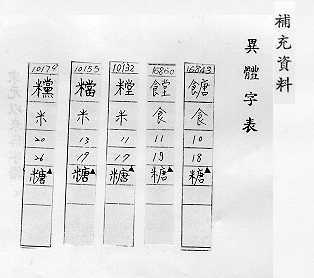 補充資料
異體字表
16843
餹
食
10
18
糖▲
16860
饄
食
11
19
糖▲
10132
米
11
17
糖▲
10155
米
13
19
糖▲
10179
米
20
26
糖▲